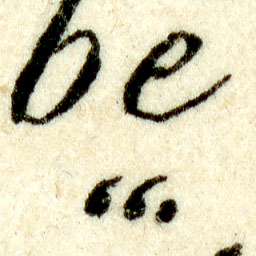 be
“.